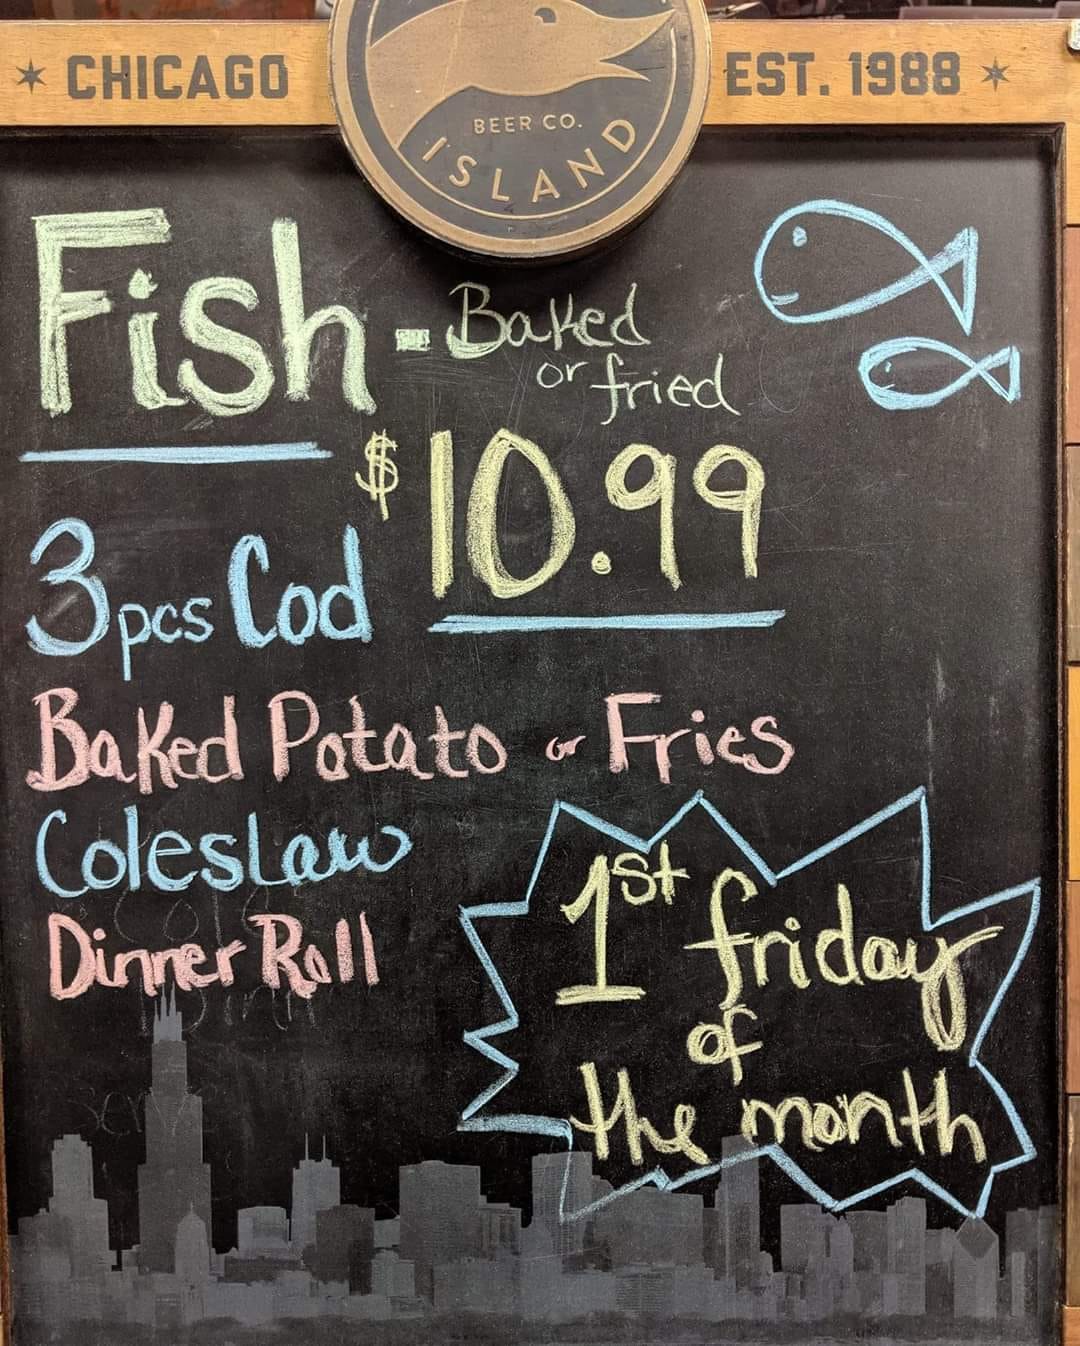 CHICAGO
EST. 1988
BEER CO.
ISLAND
Fish - Baked
or fried
$10.99
3pcs Cod
Baked Potato or Fries
Coleslaw
Dinner Roll
1st friday
of
the month